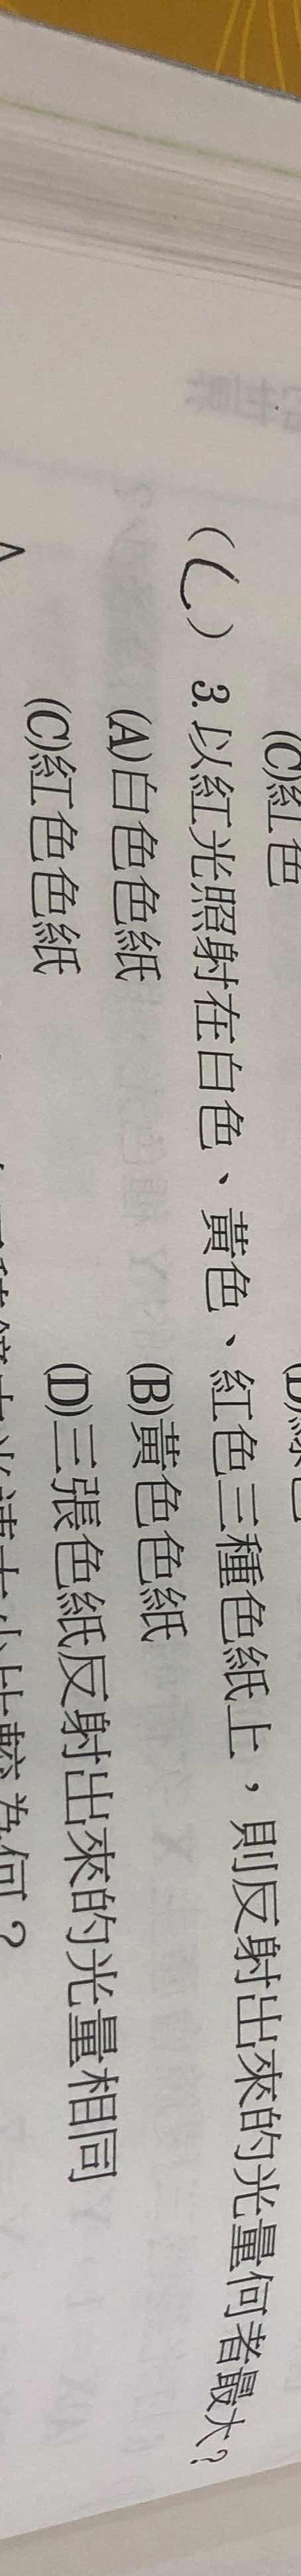 (C)紅色
(C) 3.以紅光照射在白色、黃色、紅色三種色紙上，則反射出來的光量何者最大？
(A)白色色紙 (B)黃色色紙
(C)紅色色紙 (D)三張色紙反射出來的光量相同
比較為何？